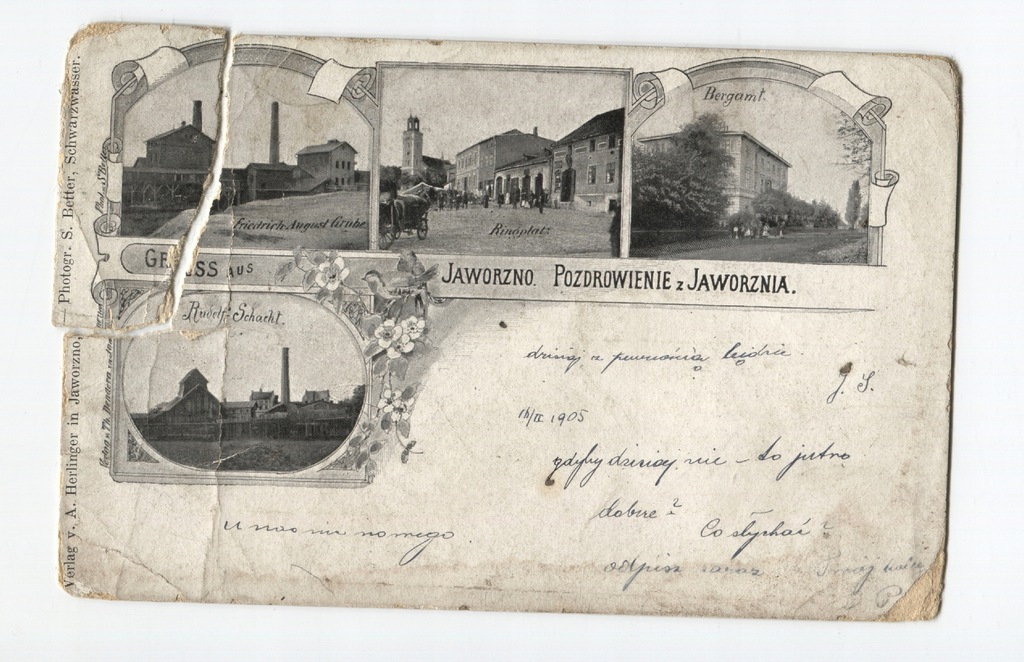 Bergamt.
Friedrich August Grube
Ringplatz
GRUSS AUS JAWORZNO. POZDROWIENIE z JAWORZNIA.
Rudolf-Schacht.
dzisiaj z pewnością będzie
J. S.
16/II 1905
gdyby dzisiaj nie - to jutro
dobrze?
Co słychać?
U nas nic nowego
odpisz zaraz
Verlag v. A. Herlinger in Jaworzno, — Photogr. S. Better, Schwarzwasser.